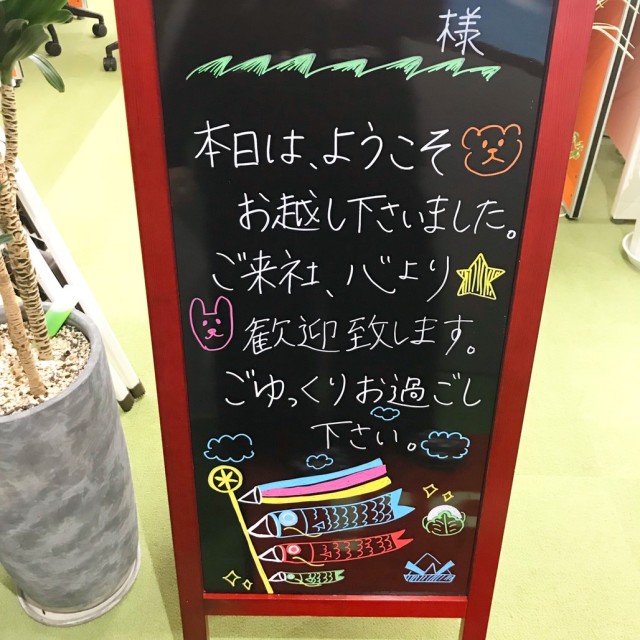 様
本日は、ようこそ
お越し下さいました。
ご来社、心より
歓迎致します。
ごゆっくりお過ごし
下さい。